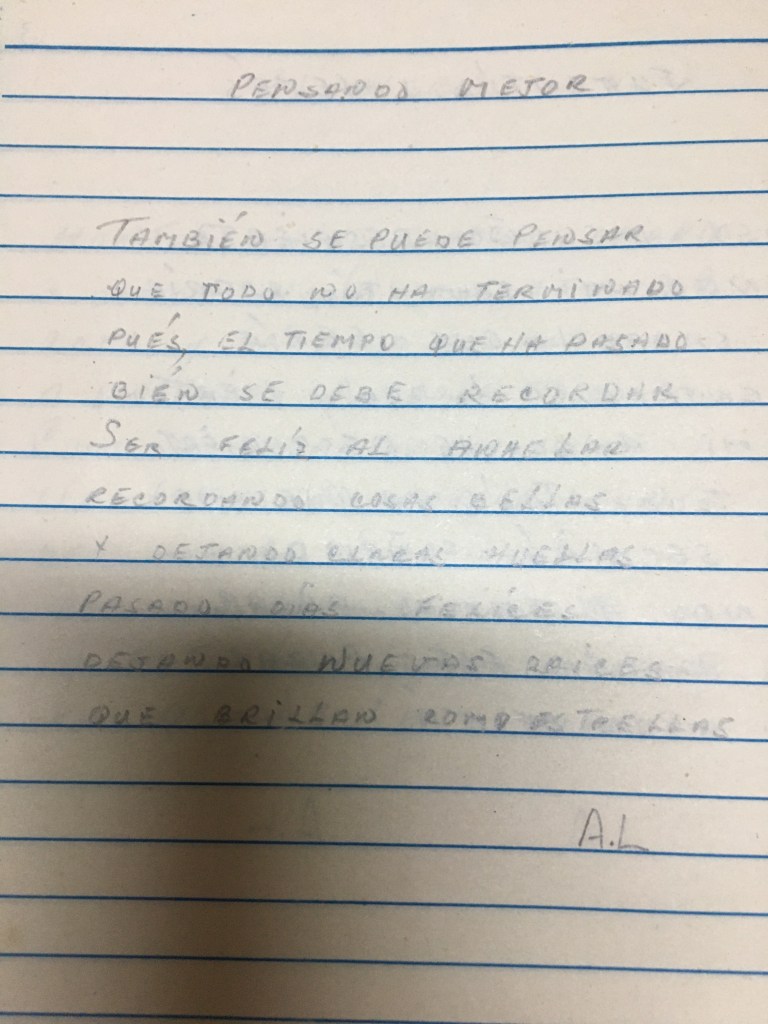 PENSANDO MEJOR
TAMBIÉN SE PUEDE PENSAR
QUE TODO NO HA TERMINADO
PUÉS, EL TIEMPO QUE HA PASADO
BIÉN SE DEBE RECORDAR
SER FELÍZ AL ANHELAR
RECORDANDO COSAS BELLAS
Y DEJANDO CLARAS HUELLAS
PASADO DIAS FELICES
DEJANDO NUEVAS RAICES
QUE BRILLAN COMO ESTRELLAS
A.L